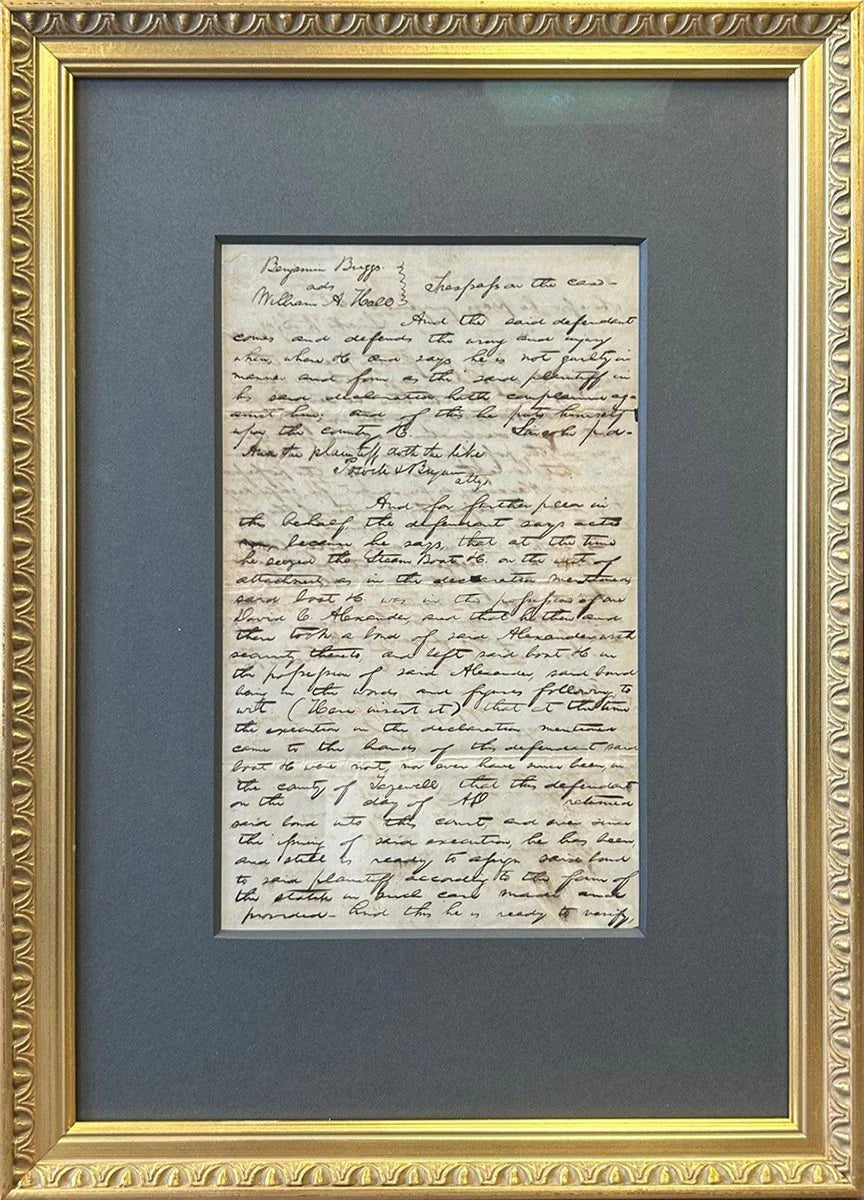 Benjamin Briggs
ads
William A. Hall } Trespass on the case-
And the said defendant
comes and defends the wrong and injury
when, where &c and says he is not guilty in
manner and form as the said plaintiff in
his said declaration hath complained aga
ainst him; and of this he puts himself
upon the country &c. Lincoln p.d-
And the plaintiff doth the like
& Bryan
attys
And for further plea in
this behalf, the defendant says actio
non, because he says, that at the time
he seized the Steam Boat &c. on the writ of
attachment, as in the declaration mentioned
said boat &c was in the possession of one
David C Alexander, and that he then and
there took a bond of said Alexander, with
security thereto, and left said boat &c in
the possession of said Alexander, said bond
being in the words and figures following, to
wit: (Here insert it) that at the time
the execution in the declaration mentioned
came to the hands of this defendant said
boat &c were not, nor ever have since been in
the county of Tazewell, that this defendant
on the day of AD returned
said bond into this court, and ever since
the issuing of said execution, he has been,
and still is ready to assign said bond
to said plaintiff according to the form of
the statute in such case made and
provided- And this he is ready to verify,